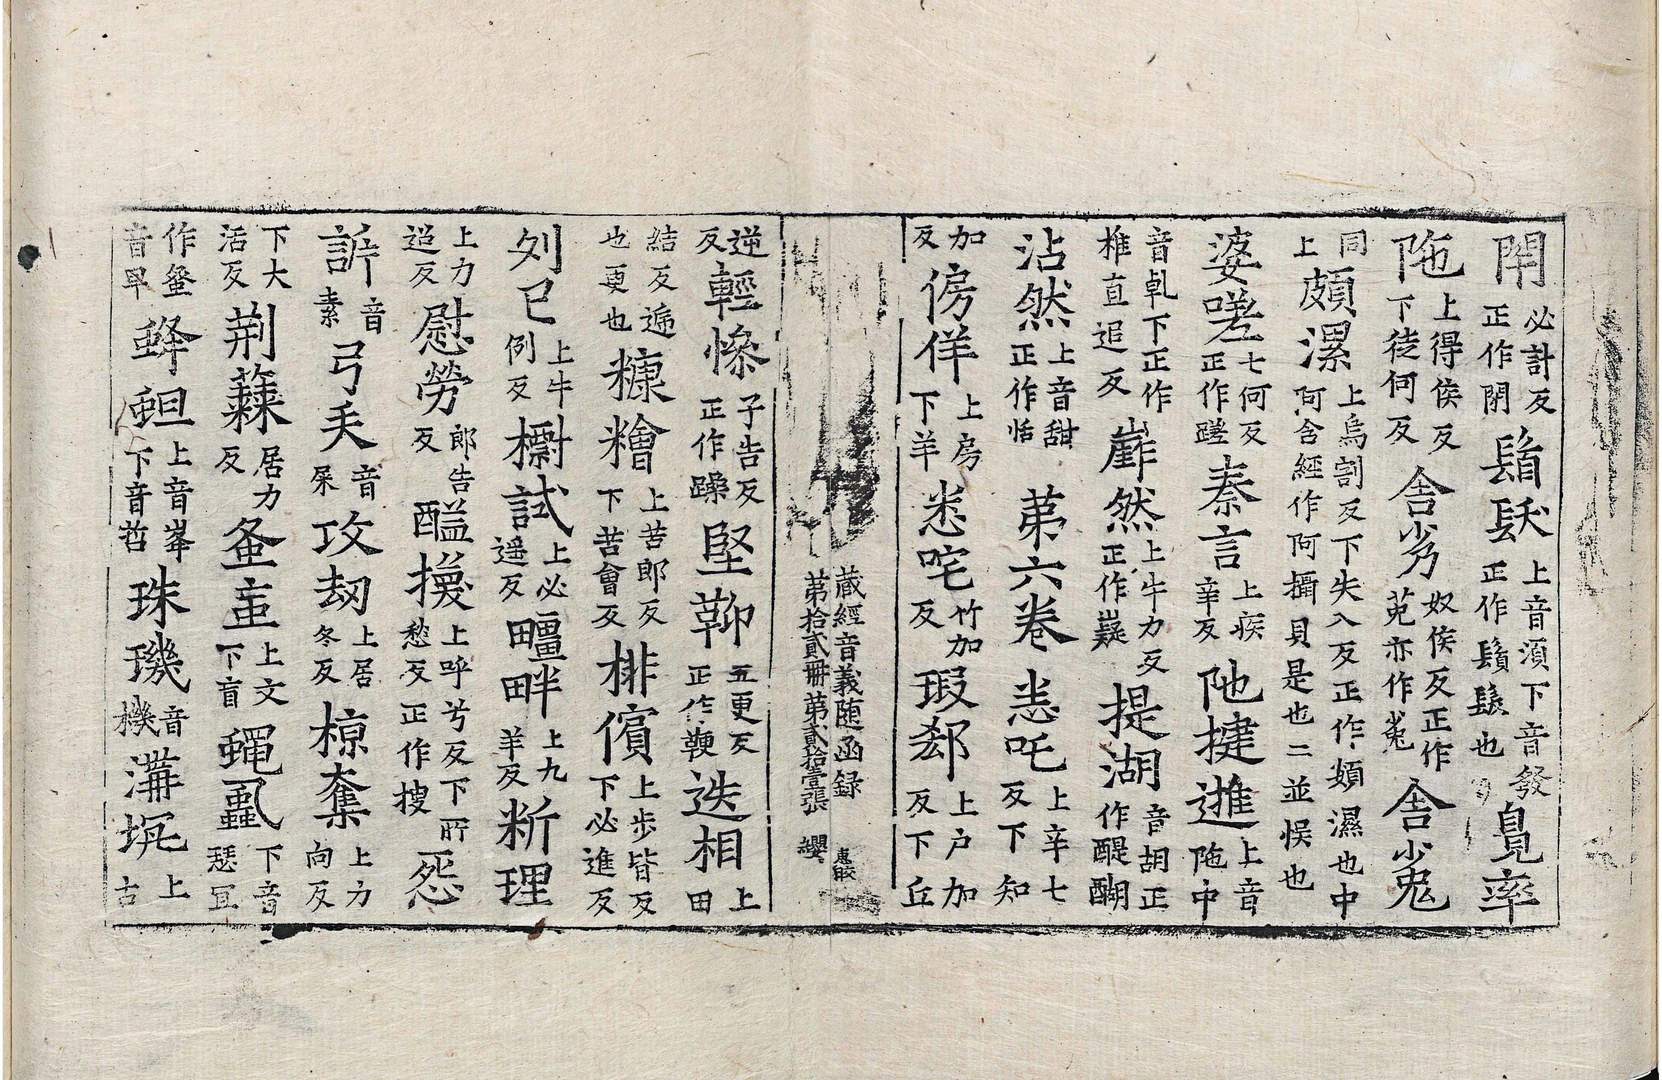 閇必計反正作閉鬚䯸上音須下音發正作鬚髮也覓率
陁上得侯反下徒何反舍㓥奴侯反正作㝹亦作㝹舍㝹
同上頗漯上烏割反下失入反正作頞濕也中阿含經作阿攝貝是也二並悮也
婆嗟七何反正作蹉秦言上疾辛反阤揵𨗴上音陁中
音乹下正作椎直追反㠿然上牛力反正作嶷提湖音胡正作醍醐
沾然上音甜正作恬苐六卷恚吒上辛七反下知
加反傍佯上房下羊悉咤竹加反瑕郄上戶加反下丘
蔵經音義随函録第拾貳冊第貳拾壹張纓
逆反輕㥒子告反正作躁堅䩕五更反正作鞕迭相上田
結反遍也更也糠䊦上苦郎反下苦會反排儐上步皆反下必進反
刿已上牛例反㯕試上必遥反畺畔上九羊反断理
上力追反慰勞郎告反醯摱上呼兮反下所愁反正作搜怨
訴音素弓㞢音屎攻刼上居冬反椋奪上力向反
下大活反荆蕀居力反蚉䖟上文下盲蝿蝨下音瑟冝
作蝥音早蜂蛆上音峯下音哲珠璣音機溝坑上古